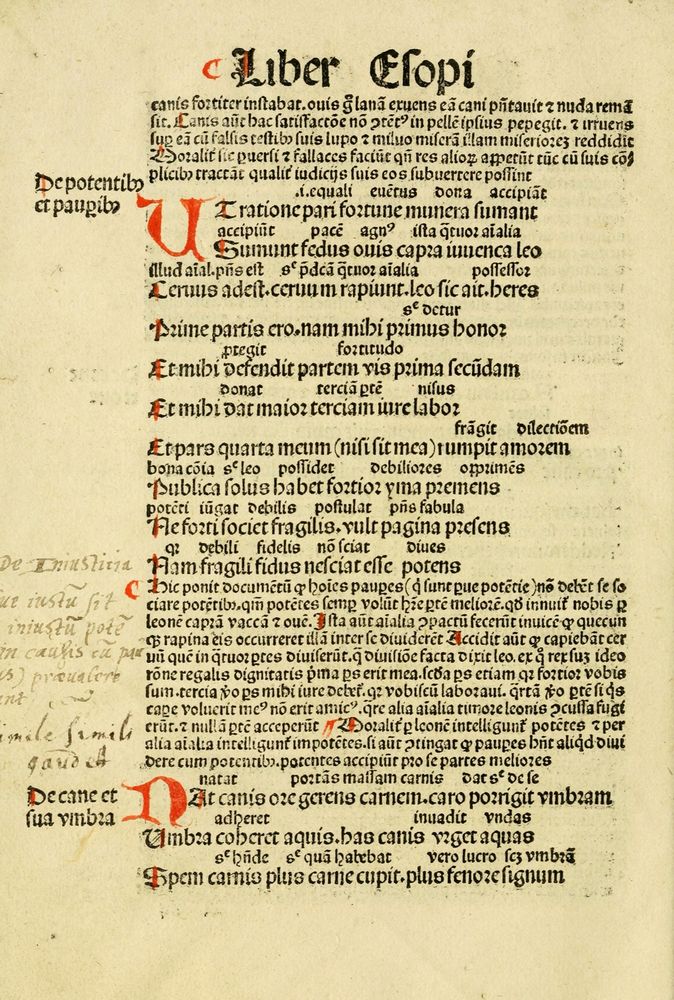 Liber Esopi
canis fortiter instabat. ouis gͥ lanā exuens eā cani pn̄tauit ⁊ nuda remā
sit. Canis aūt hac satiſfactōe nō ꝯtētꝰ in pellē ipſius pepegit. ⁊ irruens
suꝑ eā cū falsis teſtibꝫ suis lupo ⁊ miluo miserā illam miseriorēꝫ reddidit
Moralit͛ sic ꝑuersi ⁊ fallaces faciūt qn̄ res alioꝝ appetūt tūc cū suis cōꝫ
plicibꝫ tractāt qualit͛ iudicijs suis eos subuertere poſſint
De potentibꝫ
et pauꝑibꝫ
.i. equali euētus dona accipiāt
UT ratione pari fortune munera sumant
accipiūt pacē agnꝰ iſta q̄tuor aīalia
Sumunt fedus ouis capra iuuenca leo
illud aīal. pn̄s eſt sᶜ p̄dcā q̄tuor aīalia poſſeſſor
Ceruus adeſt. ceruum rapiunt. leo sic ait. heres
sᶜ detur
Prime partis ero. nam mihi primus honor
ꝓtegit fortitudo
Et mihi defendit partem vis prima secūdam
donat terciā ꝑtē nisus
Et mihi dat maior terciam iure labor
frāgit dilectiōem
Et pars quarta meum (nisi sit mea) rumpit amorem
bona cōia sᶜ leo poſſidet debiliores opprimēs
Publica solus habet fortior yma premens
potēti iūgat debilis poſtulat pn̄s fabula
Ne forti societ fragilis. vult pagina presens
qꝛ debili fidelis nō sciat diues
Nam fragili fidus nesciat eſſe potens
Hic ponit documētū ꝙ hoīes pauꝑes (q̇ sunt ꝑue potētie) nō debēt se so
ciare potētibꝫ. qm̄ potētes semꝑ volūt hr̄e ꝑtē meliorē. qd̓ innuit͛ nobis ꝑ
leonē caprā vaccā ⁊ ouē. Iſta aūt aīalia ꝯpactū fecerūt inuicē ꝙ quecun
qꝫ rapina eis occurreret illā inter se diuiderēt Accidit aūt ꝙ capiebāt cer
uū quē in q̄tuor ꝑtes diuiserūt. q̄ diuisiōe facta dixit leo. ex q̊ rex suꝫ ideo
rōne regalis dignitatis p̄ma ꝑs erit mea. scd̓a ꝑs etiam qꝛ fortior vobis
sum. tercia v̊o ꝑs mihi iure debet͛. qꝛ vobiscū laboraui. q̄rtā v̊o ꝑtē si q̇s
caꝑe voluerit meꝰ nō erit amicꝰ. q̄re alia aīalia timore leonis ꝯcuſſa fugi
erūt. ⁊ nullā ꝑtē acceperūt Moralit͛ ꝑ leonē intelligunt͛ potētes ⁊ per
alia aīalia intelligunt͛ impotētes. si aūt ꝯtingat ꝙ pauꝑes hn̄t aliqd̓ diui
dere cum potentibꝫ. potentes accipiūt pro se partes meliores
De Iniuſticia
iuſtū sit
iniuſtū potē
prævalere
simili
gaudet
De cane et
sua vmbra
natat portās maſſam carnis dat sᶜ de se
NAt canis ore gerens carnem. caro porrigit vmbram
adheret inuadit vndas
Umbra coheret aquis. has canis vrget aquas
sᶜ hn̄de sᶜ quā habebat vero lucro scꝫ vmbrā
Spem carnis plus carne cupit. plus fenore signum